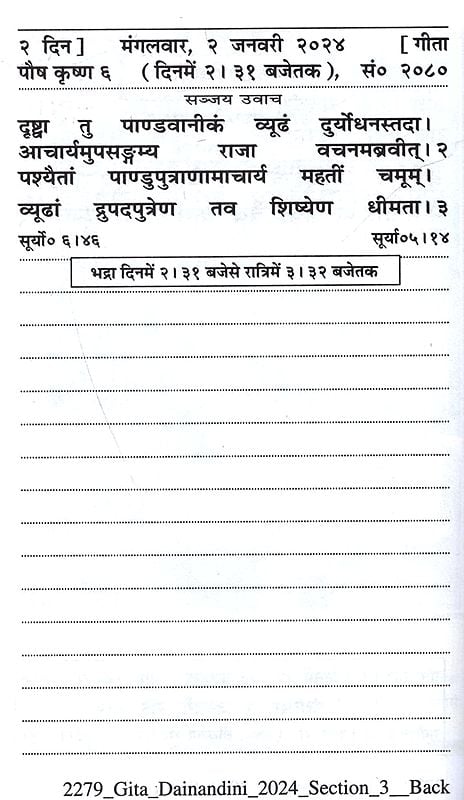 २ दिन ] मंगलवार, २ जनवरी २०२४ [ गीता
पौष कृष्ण ६ ( दिनमें २। ३१ बजेतक ), सं० २०८०
सञ्जय उवाच
दृष्ट्वा तु पाण्डवानीकं व्यूढं दुर्योधनस्तदा।
आचार्यमुपसङ्गम्य राजा वचनमब्रवीत्। २
पश्यैतां पाण्डुपुत्राणामाचार्य महतीं चमूम्।
व्यूढां द्रुपदपुत्रेण तव शिष्येण धीमता। ३
सूर्यो० ६।४६ सूर्या०५।१४
भद्रा दिनमें २। ३१ बजेसे रात्रिमें ३। ३२ बजेतक
2279_Gita_Dainandini_2024_Section_3__Back